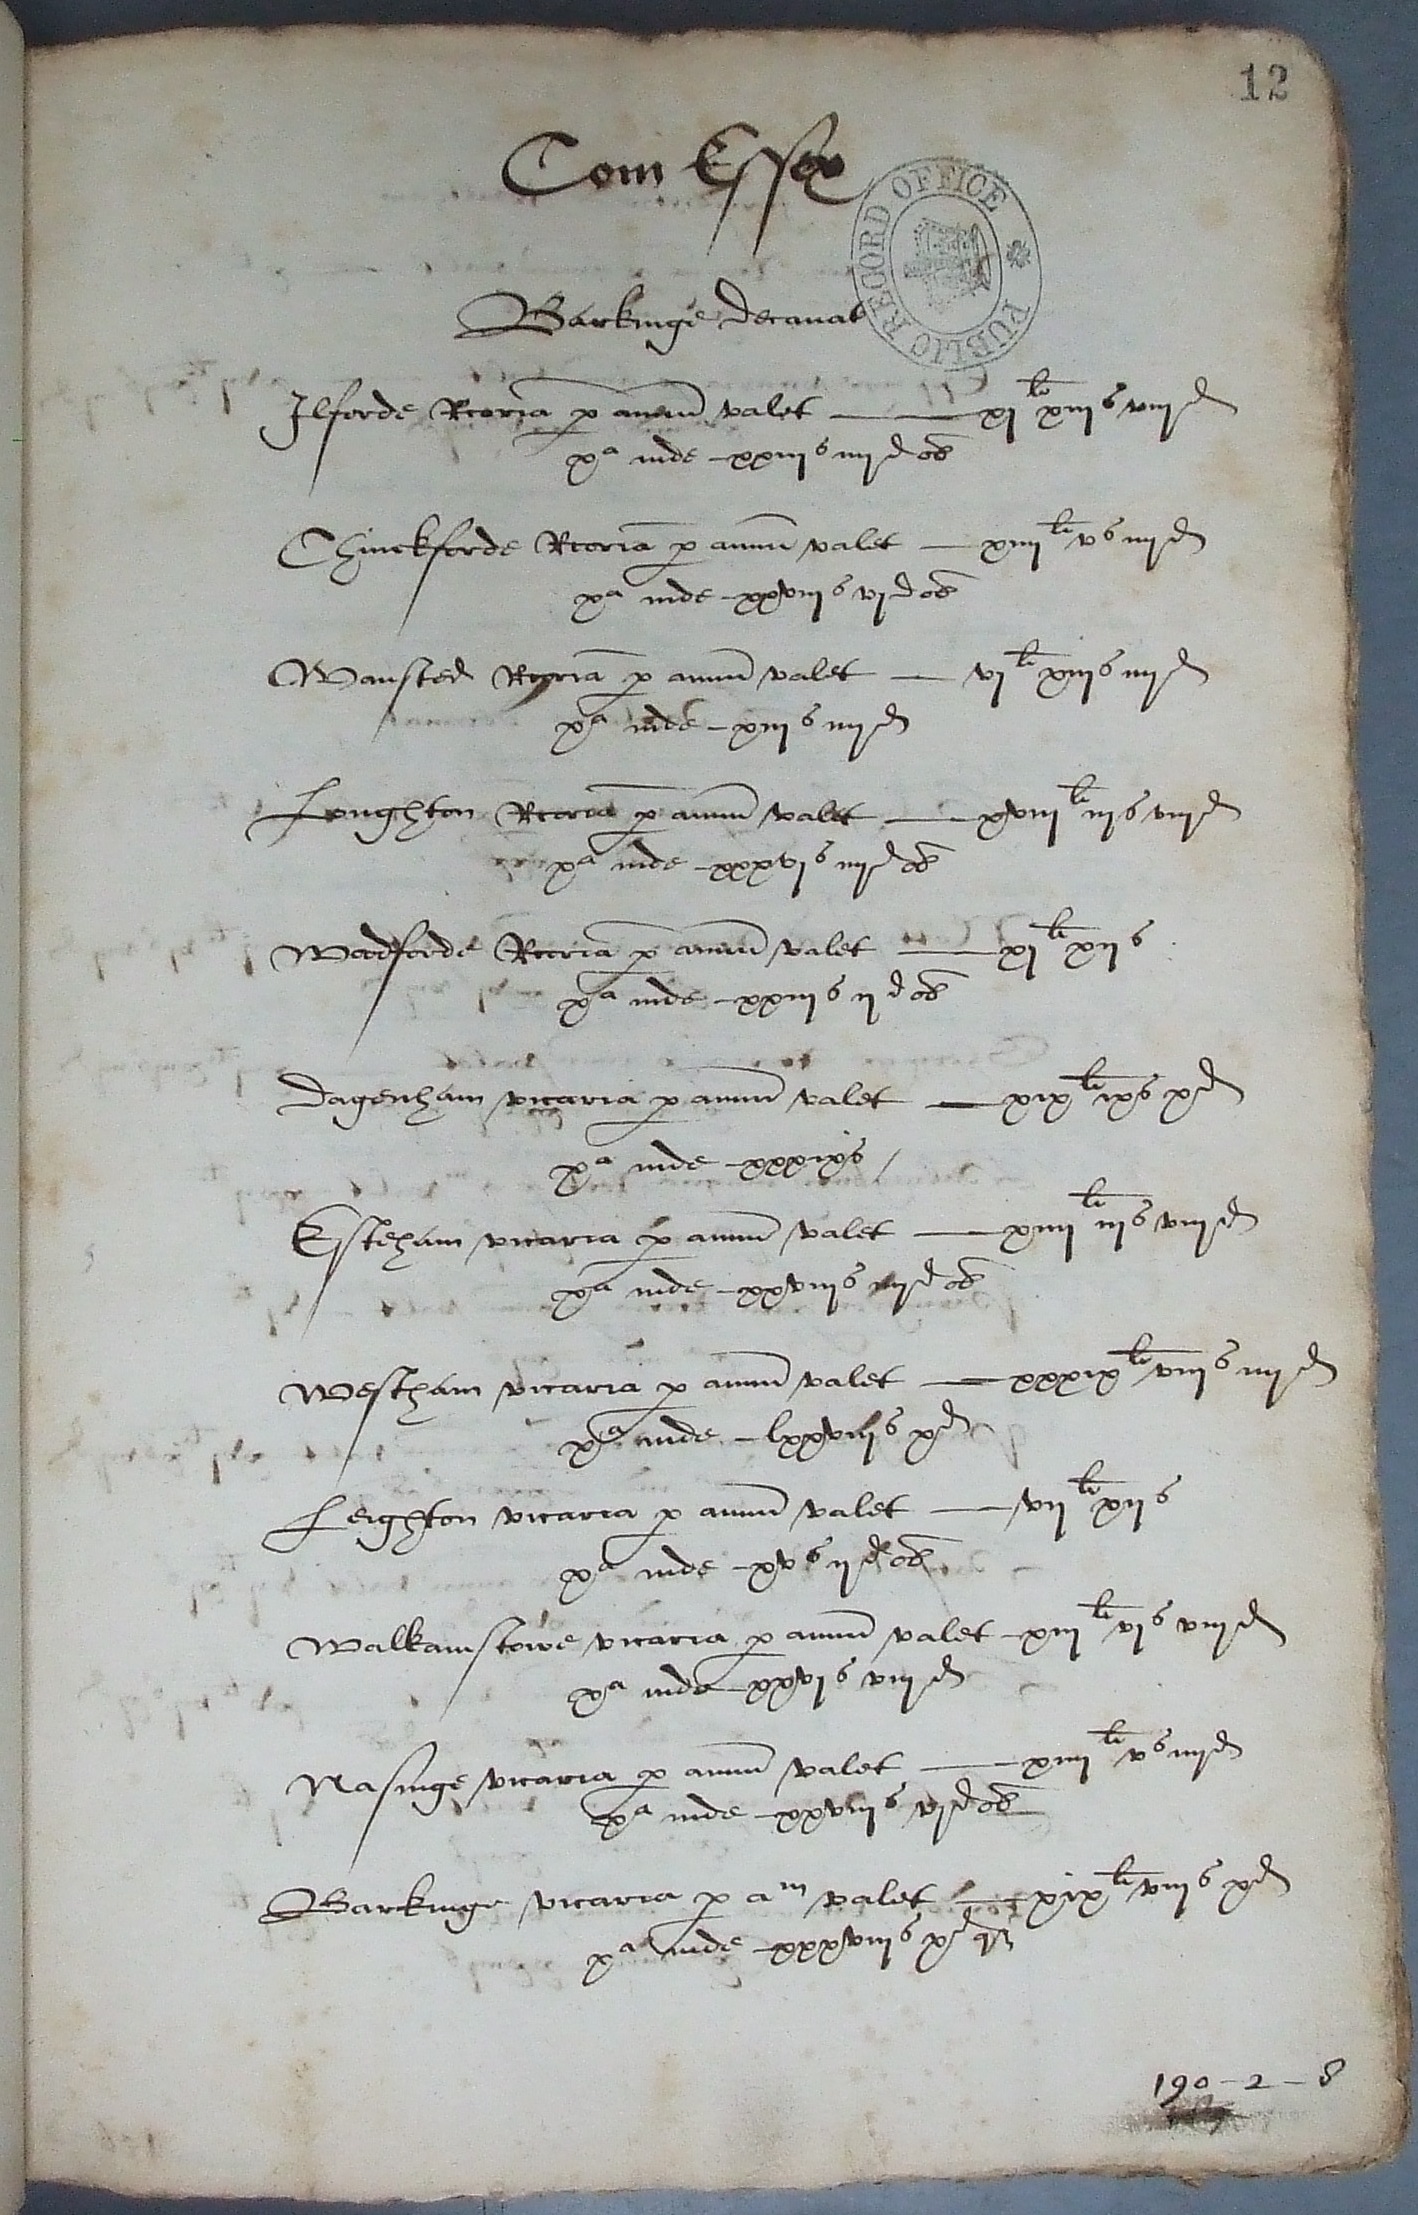 12
Com Essex
PUBLIC RECORD OFFICE
Barkinge decanat
Ilforde Rcoria p annu valet — xj li xiij s viij d
xa inde - xxiij s iiij d ob
Chinckforde Rcoria p annu valet — xiiij li v s iiij d
xa inde - xxviij s vj d ob
Wansted Rcoria p annu valet — vj li xiij s iiij d
xa inde - xiij s iiij d
Loughton Rcoria p annu valet — xviij li iij s viij d
xa inde - xxxvj s iiij d ob
Woodforde Rcoria p annu valet — xj li xij s
xa inde - xxiij s ij d ob
Dagenham vicaria p annu valet — xix li ix s x d
xa inde - xxxix s /
Esteham vicaria p annu valet — xiiij li iij s viij d
xa inde - xxviij s iiij d ob
Westham vicaria p annu valet — xxxix li viij s iiij d
xa inde - lxxviij s x d
Leighton vicaria p annu valet — vij li xij s
xa inde - xv s ij d ob
Walkamstowe vicaria p annu valet - xiij li vj s viij d
xa inde - xxvj s viij d
Nasinge vicaria p annu valet — xiiij li v s iiij d
xa inde - xxviij s vj d ob
Barkinge vicaria p am valet — xix li viij s x d
xa inde - xxxviij s x d q
190 - 2 - 8